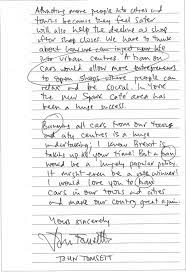 Attracting more people into cities and
towns because they feel safer
will also help the decline as shop
after shop closes. We have to think
about how we can inject new life
into urban centres. A ban on
cars would allow more entrepreneurs
to open shops where people can
relax and be social. In York
the new Spark Cafe area has
been a huge success.
Banning all cars from our towns
and city centres is a huge
undertaking; I know Brexit is
taking up all your time! But a ban
would be a hugely popular policy.
It might even be a vote winner!
I would love you to ban
cars in our towns and cities
and make our country great again.
Yours sincerely
John Tomsett
JOHN TOMSETT